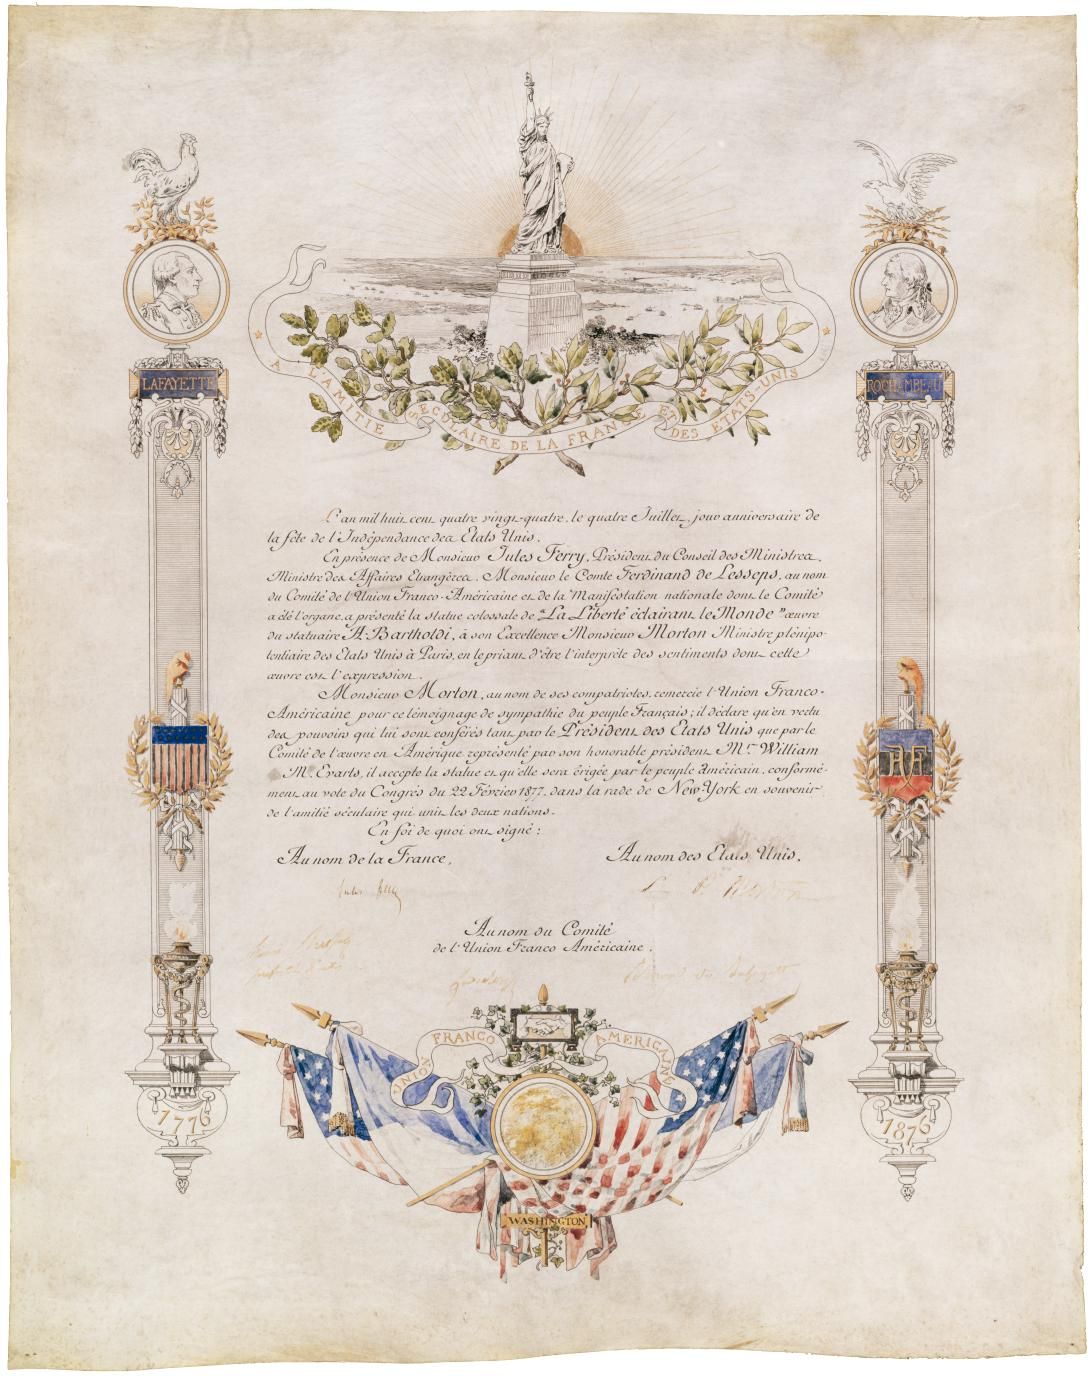 LAFAYETTE
ROCHAMBEAU
A L'AMITIE SECULAIRE DE LA FRANCE ET DES ETATS-UNIS
L'an mil huit cent quatre vingt-quatre, le quatre Juillet, jour anniversaire de
la fête de l'Indépendance des Etats Unis.
En présence de Monsieur Jules Ferry, Président du Conseil des Ministres,
Ministre des Affaires Etrangères, Monsieur le Comte Ferdinand de Lesseps, au nom
du Comité de l'Union Franco-Américaine et de la Manifestation nationale dont le Comité
a été l'organe, a présenté la statue colossale de "La Liberté éclairant le Monde" œuvre
du statuaire A. Bartholdi, à son Excellence Monsieur Morton Ministre plénipo-
tentiaire des Etats Unis à Paris, en le priant d'être l'interprète des sentiments dont cette
œuvre est l'expression.
Monsieur Morton, au nom de ses compatriotes, remercie l'Union Franco-
Américaine pour ce témoignage de sympathie du peuple Français ; il déclare qu'en vertu
des pouvoirs qui lui sont conférés tant par le Président des Etats Unis que par le
Comité de l'œuvre en Amérique représenté par son honorable président Mr William
M. Evarts, il accepte la statue et qu'elle sera érigée par le peuple américain, conformé-
ment au vote du Congrès du 22 Février 1877, dans la rade de New York en souvenir
de l'amitié séculaire qui unit les deux nations.
En foi de quoi ont signé :
Au nom de la France,
Au nom des Etats Unis.
Jules Ferry
Au nom du Comité
de l'Union Franco Américaine.
UNION FRANCO AMERICAINE
1776
1876
WASHINGTON